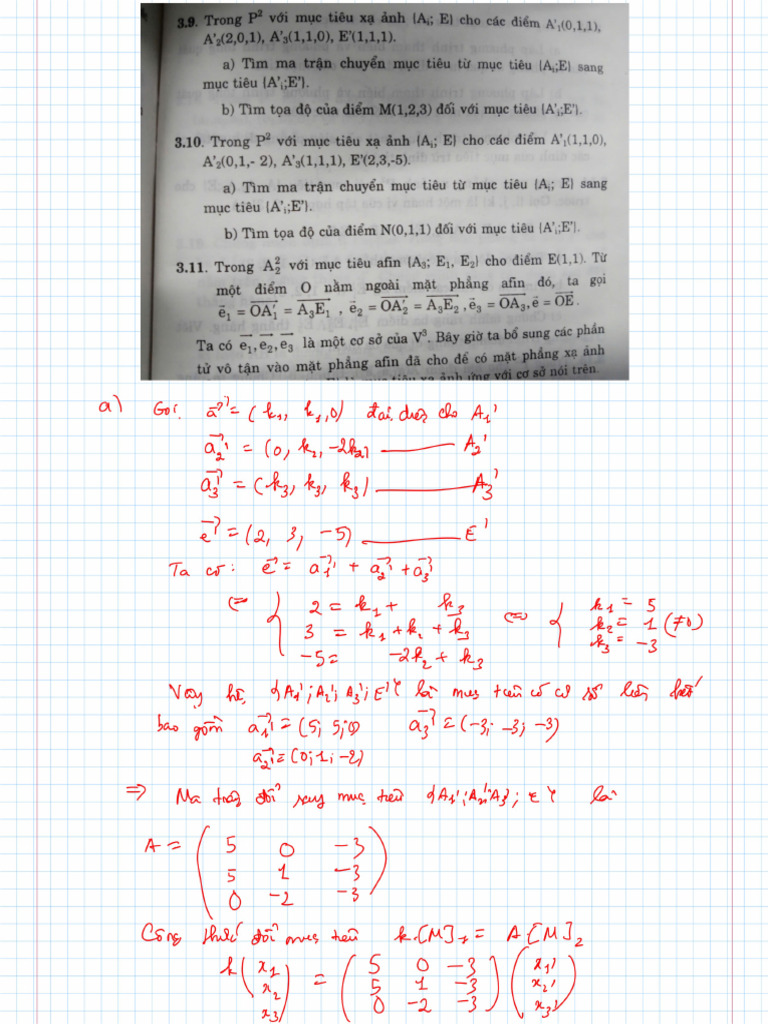 3.9. Trong P² với mục tiêu xạ ảnh {Aᵢ; E} cho các điểm A'₁(0,1,1),
A'₂(2,0,1), A'₃(1,1,0), E'(1,1,1).
a) Tìm ma trận chuyển mục tiêu từ mục tiêu {Aᵢ;E} sang
mục tiêu {A'ᵢ;E'}.
b) Tìm tọa độ của điểm M(1,2,3) đối với mục tiêu {A'ᵢ;E'}.
3.10. Trong P² với mục tiêu xạ ảnh {Aᵢ; E} cho các điểm A'₁(1,1,0),
A'₂(0,1,- 2), A'₃(1,1,1), E'(2,3,-5).
a) Tìm ma trận chuyển mục tiêu từ mục tiêu {Aᵢ; E} sang
mục tiêu {A'ᵢ;E'}.
b) Tìm tọa độ của điểm N(0,1,1) đối với mục tiêu {A'ᵢ;E'}.
3.11. Trong A₂² với mục tiêu afin {A₃; E₁, E₂} cho điểm E(1,1). Từ
một điểm O nằm ngoài mặt phẳng afin đó, ta gọi
e⃗₁ = OA'₁ = A₃E₁ , e⃗₂ = OA'₂ = A₃E₂, e⃗₃ = OA₃, e⃗ = OE.
Ta có e₁, e₂, e₃ là một cơ sở của V³. Bây giờ ta bổ sung các phần
tử vô tận vào mặt phẳng afin đã cho để có mặt phẳng xạ ảnh
ứng với cơ sở nói trên.
a) Gọi a⃗' = (k₁, k₁, 0) đại diện cho A₁'
a⃗₂' = (0, k₂, -2k₂) A₂'
a⃗₃' = (k₃, k₃, k₃) A₃'
e⃗' = (2, 3, -5) E'
Ta có: e⃗' = a⃗₁' + a⃗₂' + a⃗₃'
⇔ { 2 = k₁ + k₃ ⇔ { k₁ = 5
3 = k₁ + k₂ + k₃ k₂ = 1 (≠0)
-5 = -2k₂ + k₃ k₃ = -3
Vậy {A₁'; A₂'; A₃'; E'} là mục tiêu có cơ sở
bao gồm a⃗₁' = (5; 5; 0) a⃗₃' = (-3; -3; -3)
a⃗₂' = (0; 1; -2)
⇒ Ma trận đổi sang mục tiêu {A₁'; A₂' A₃'; E'} là
A = ( 5 0 -3
5 1 -3
0 -2 -3 )
Công thức đổi mục tiêu k.[M]₁ = A.[M]₂
k ( x₁ ) = ( 5 0 -3 ) ( x₁' )
x₂ 5 1 -3 x₂'
x₃ 0 -2 -3 x₃'